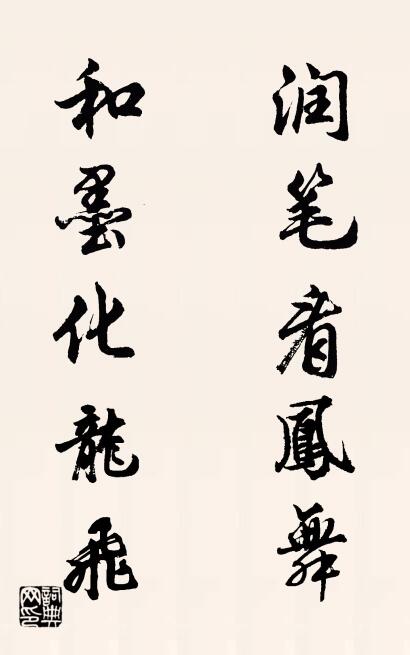 润笔看鳳舞
和墨化龍飛
詞典网印